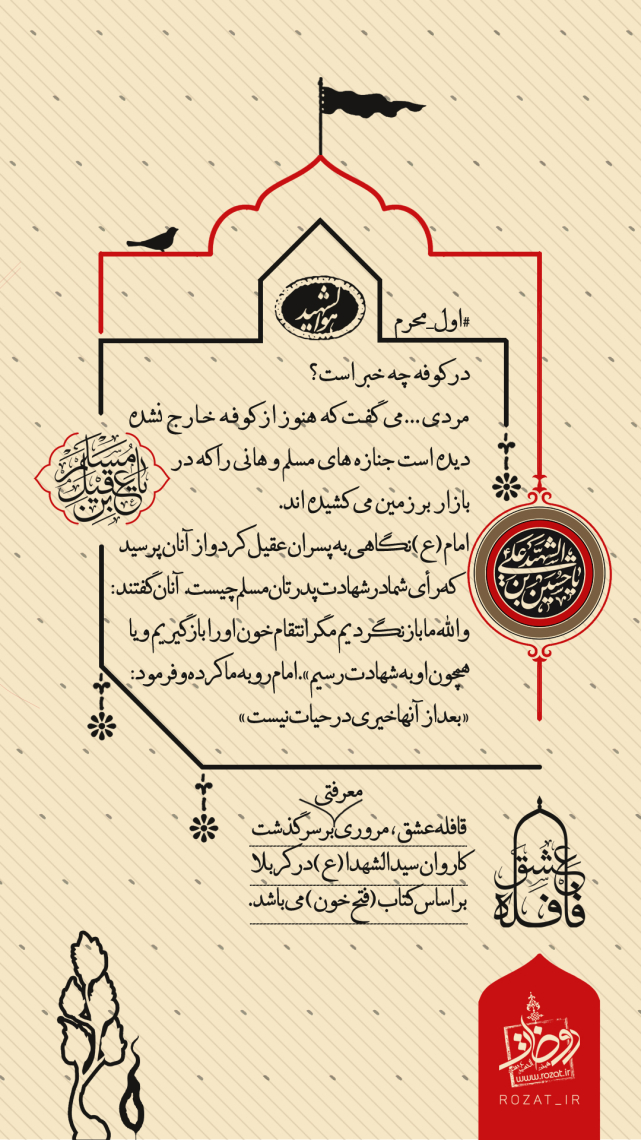 هوالشهید
#اول_محرم
در کوفه چه خبر است؟
مردی... می گفت که هنوز از کوفه خارج نشده
دیده است جنازه های مسلم و هانی را که در
بازار بر زمین می کشیده اند.
امام(ع) نگاهی به پسران عقیل کرد و از آنان پرسید
که رأی شما در شهادت پدرتان مسلم چیست. آنان گفتند:
والله ما باز نگردیم مگر انتقام خون او را بازگیریم و یا
همچون او به شهادت رسیم». امام رو به ما کرده و فرمود:
«بعد از آنها خیری در حیات نیست»
یا مسلم بن عقیل
الشهید
یا حسین بن علی
معرفتی
قافله عشق، مروری بر سرگذشت
کاروان سیدالشهدا (ع) در کربلا
بر اساس کتاب (فتح خون) می باشد.
قافله عشق
روضات
www.rozat.ir
ROZAT_IR